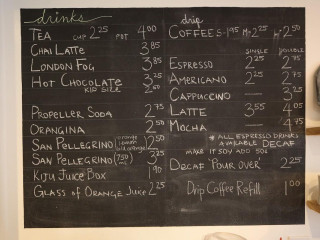 drinks
TEA CUP 2.25 POT 4.00
CHAI LATTE 3.85
LONDON FOG 3.85
HOT CHOCOLATE 3.25
KID SIZE 2.50
PROPELLER SODA 2.75
ORANGINA 2.50
SAN PELLEGRINO (orange lemon) 2.50
SAN PELLEGRINO (750 mL) 3.25
KIJU JUICE BOX 1.90
GLASS OF ORANGE JUICE 2.25
drip
COFFEE S-1.95 M-2.25 2.50
SINGLE DOUBLE
ESPRESSO 2.25 2.75
AMERICANO 2.25 2.75
CAPPUCCINO — 3.25
LATTE 3.55 4.05
MOCHA — 4.75
* ALL ESPRESSO DRINKS
AVAILABLE DECAF
MAKE IT SOY ADD 50¢
DECAF 'POUR OVER' 2.25
Drip Coffee Refill 1.00